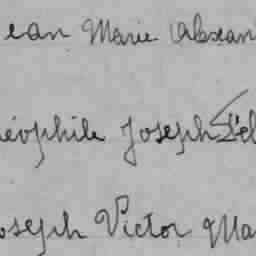 ean Marie Alexan
éophile Joseph Fél
oseph Victor Ma